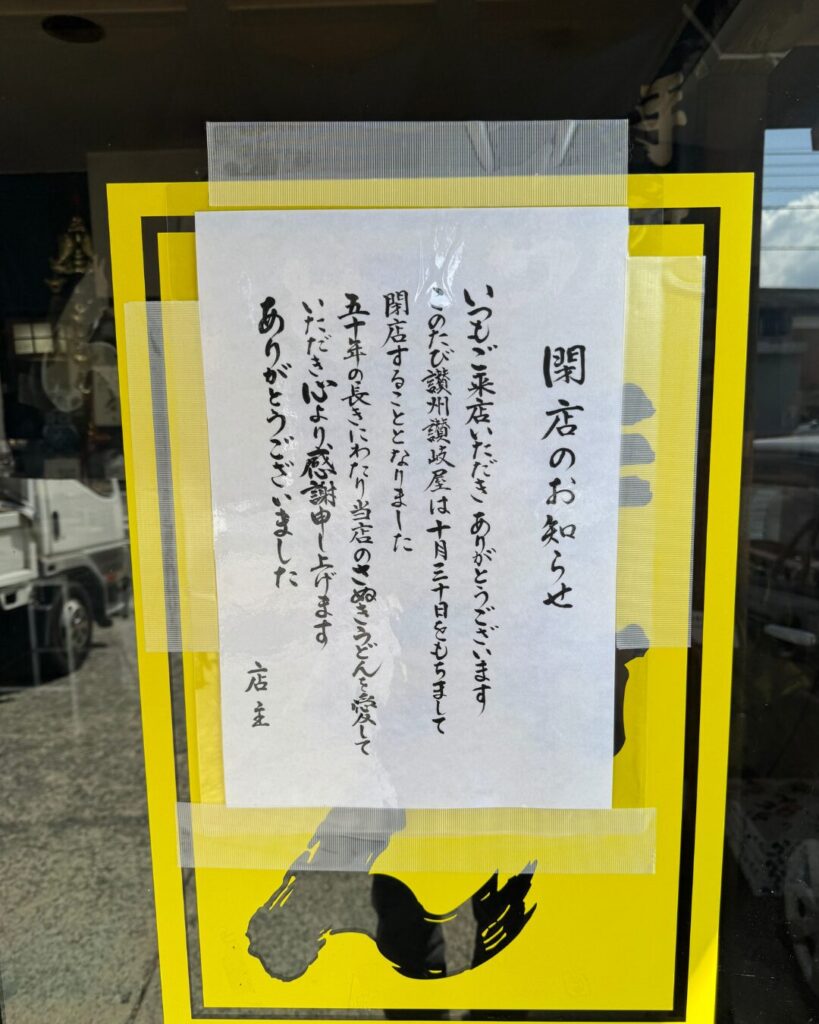 閉店のお知らせ
いつもご来店いただきありがとうございます
このたび讃州讃岐屋は十月三十日をもちまして
閉店することとなりました
五十年の長きにわたり当店のさぬきうどんを愛して
いただき心より感謝申し上げます
ありがとうございました
店主